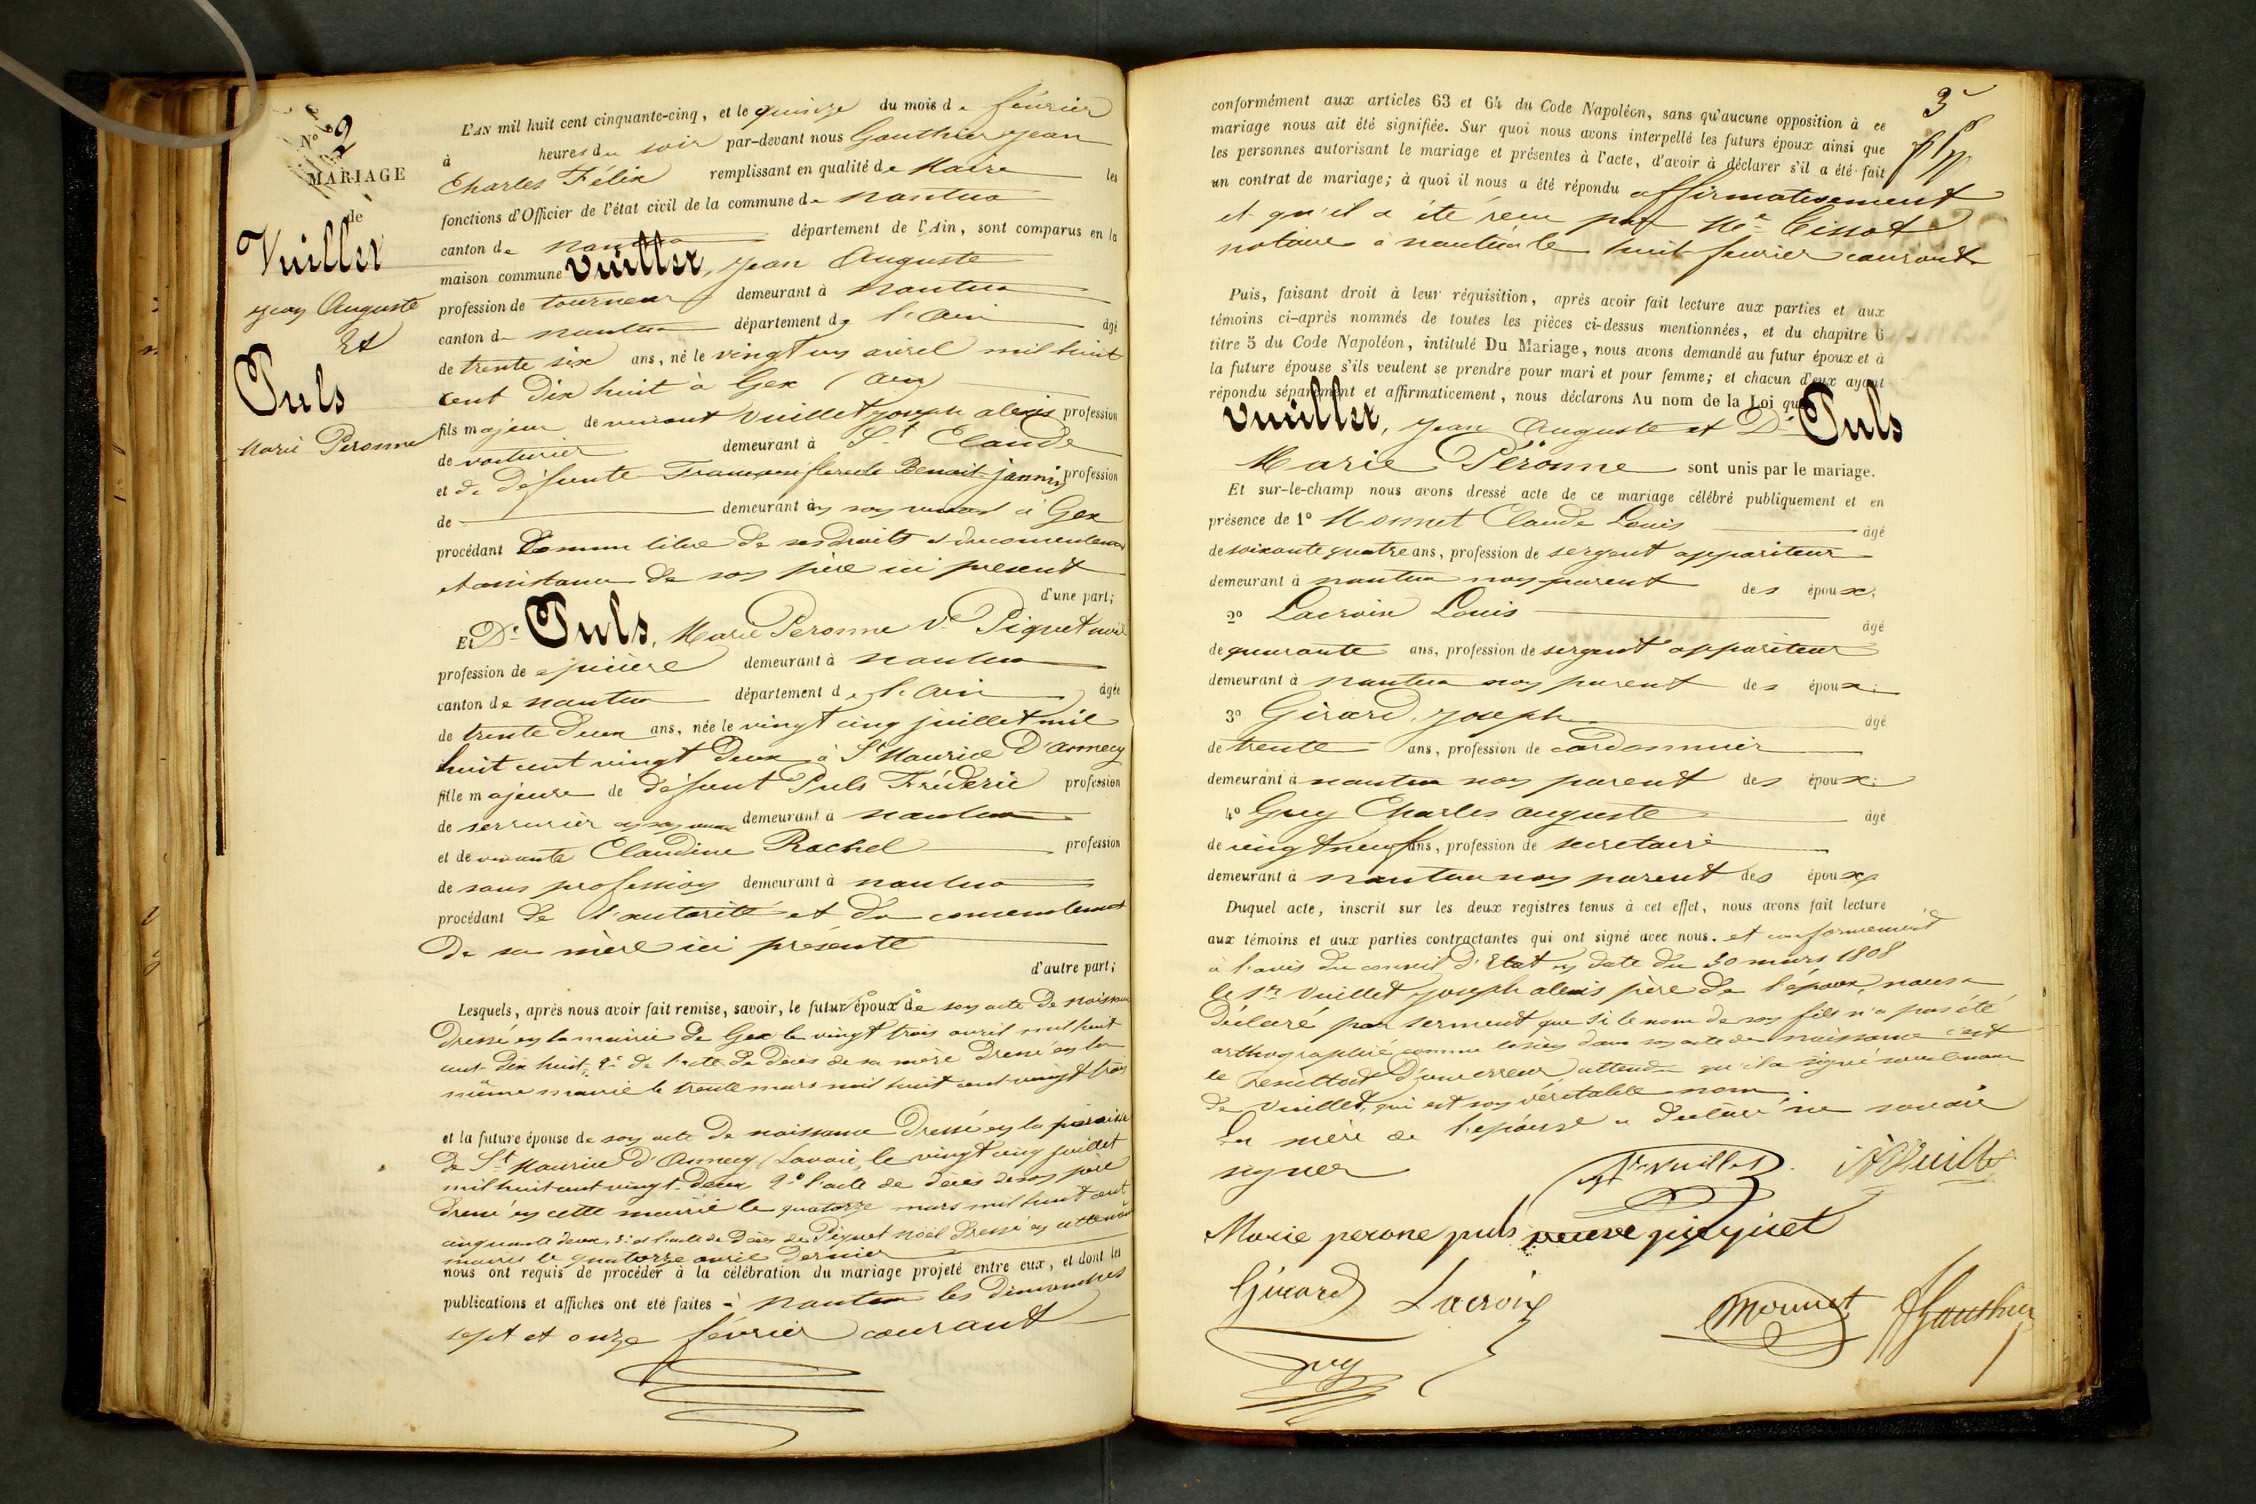 N° 2
MARIAGE
de
Vuillet
Jean Auguste
Et
Puls
Marie Peronne
L'AN mil huit cent cinquante-cinq, et le quinze du mois de février
à heures du soir par-devant nous Gauthier Jean
Charles Félix remplissant en qualité de Maire les
fonctions d'Officier de l'état civil de la commune de nantua
canton de nantua département de l'Ain, sont comparus en la
maison commune Vuillet, Jean Auguste
profession de tourneur demeurant à nantua
canton de nantua département de l'ain âgé
de trente six ans, né le vingt un avril mil huit
cent dix huit à Gex (ain)
fils majeur de vivant Vuillet joseph alexis profession
de voiturier demeurant à St Claude
et de défunte Benoit-jannin profession
de demeurant en son vivant à Gex
procédant comme libre de ses droits et du consentement
et assistance de son père ici présent
d'une part;
Et De Puls, Marie Peronne Ve Piquet noël
profession de épicière demeurant à nantua
canton de nantua département de l'ain âgée
de trente deux ans, née le vingt cinq juillet mil
huit cent vingt deux à St Maurice D'annecy
fille majeure de défunt Puls Fréderic profession
de serrurier en son vivant demeurant à nantua
et de vivante Claudine Rachel profession
de sans profession demeurant à nantua
procédant de l'autorité et du consentement
de sa mère ici présente
d'autre part;
Lesquels, après nous avoir fait remise, savoir, le futur époux de son acte de naissance
dressé en la mairie de Gex le vingt trois avril mil huit
cent dix huit, 2° de l'acte de décès de sa mère dressé en la
même mairie le trente mars mil huit cent vingt trois
et la future épouse de son acte de naissance dressé en la paroisse
de St Maurice d'Annecy (Savoie) le vingt cinq juillet
mil huit cent vingt-deux 2° l'acte de décès de son père
dressé en cette mairie le quatorze mars mil huit cent
cinquante deux, 3° et l'acte de décès de Piquet noël dressé en cette même
mairie le quatorze avril dernier
nous ont requis de procéder à la célébration du mariage projeté entre eux, et dont les
publications et affiches ont été faites à nantua les dimanches
sept et onze février courant
3
conformément aux articles 63 et 64 du Code Napoléon, sans qu'aucune opposition à ce
mariage nous ait été signifiée. Sur quoi nous avons interpellé les futurs époux ainsi que
les personnes autorisant le mariage et présentes à l'acte, d'avoir à déclarer s'il a été fait
un contrat de mariage; à quoi il nous a été répondu affirmativement
et qu'il a été reçu par Me
notaire à nantua le huit février courant
Puis, faisant droit à leur réquisition, après avoir fait lecture aux parties et aux
témoins ci-après nommés de toutes les pièces ci-dessus mentionnées, et du chapitre 6
titre 5 du Code Napoléon, intitulé Du Mariage, nous avons demandé au futur époux et à
la future épouse s'ils veulent se prendre pour mari et pour femme; et chacun d'eux ayant
répondu séparément et affirmativement, nous déclarons Au nom de la Loi que
Vuillet, Jean Auguste et De Puls
Marie Péronne sont unis par le mariage.
Et sur-le-champ nous avons dressé acte de ce mariage célébré publiquement et en
présence de 1° Monnet Claude Louis âgé
de soixante quatre ans, profession de sergent appariteur
demeurant à nantua non parent des époux;
2° Lacroix Louis âgé
de quarante ans, profession de sergent appariteur
demeurant à nantua non parent des époux;
3° Girard, joseph âgé
de trente ans, profession de cordonnier
demeurant à nantua non parent des époux;
4° Guy Charles auguste âgé
de vingt neuf ans, profession de secretaire
demeurant à nantua non parent des époux
Duquel acte, inscrit sur les deux registres tenus à cet effet, nous avons fait lecture
aux témoins et aux parties contractantes qui ont signé avec nous. et conformément
à l'avis du conseil d'Etat en date du 30 mars 1808
le Sr Vuillet joseph alexis père de l'époux, nous a
déclaré par serment que si le nom de son fils n'a pas été
orthographié comme le sien dans son acte de naissance c'est
le résultat d'une erreur, attendu qu'il a signé
de Vuillet, qui est son véritable nom.
La mère de l'épouse a déclaré ne savoir
signer
Vuillet
Vuillet
Marie perone puls veuve piquet
Girard Lacroix Monnet Gauthier
Guy